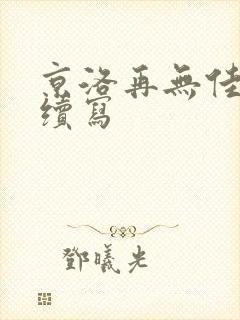 京洛再無佳
續寫
鄧曦光